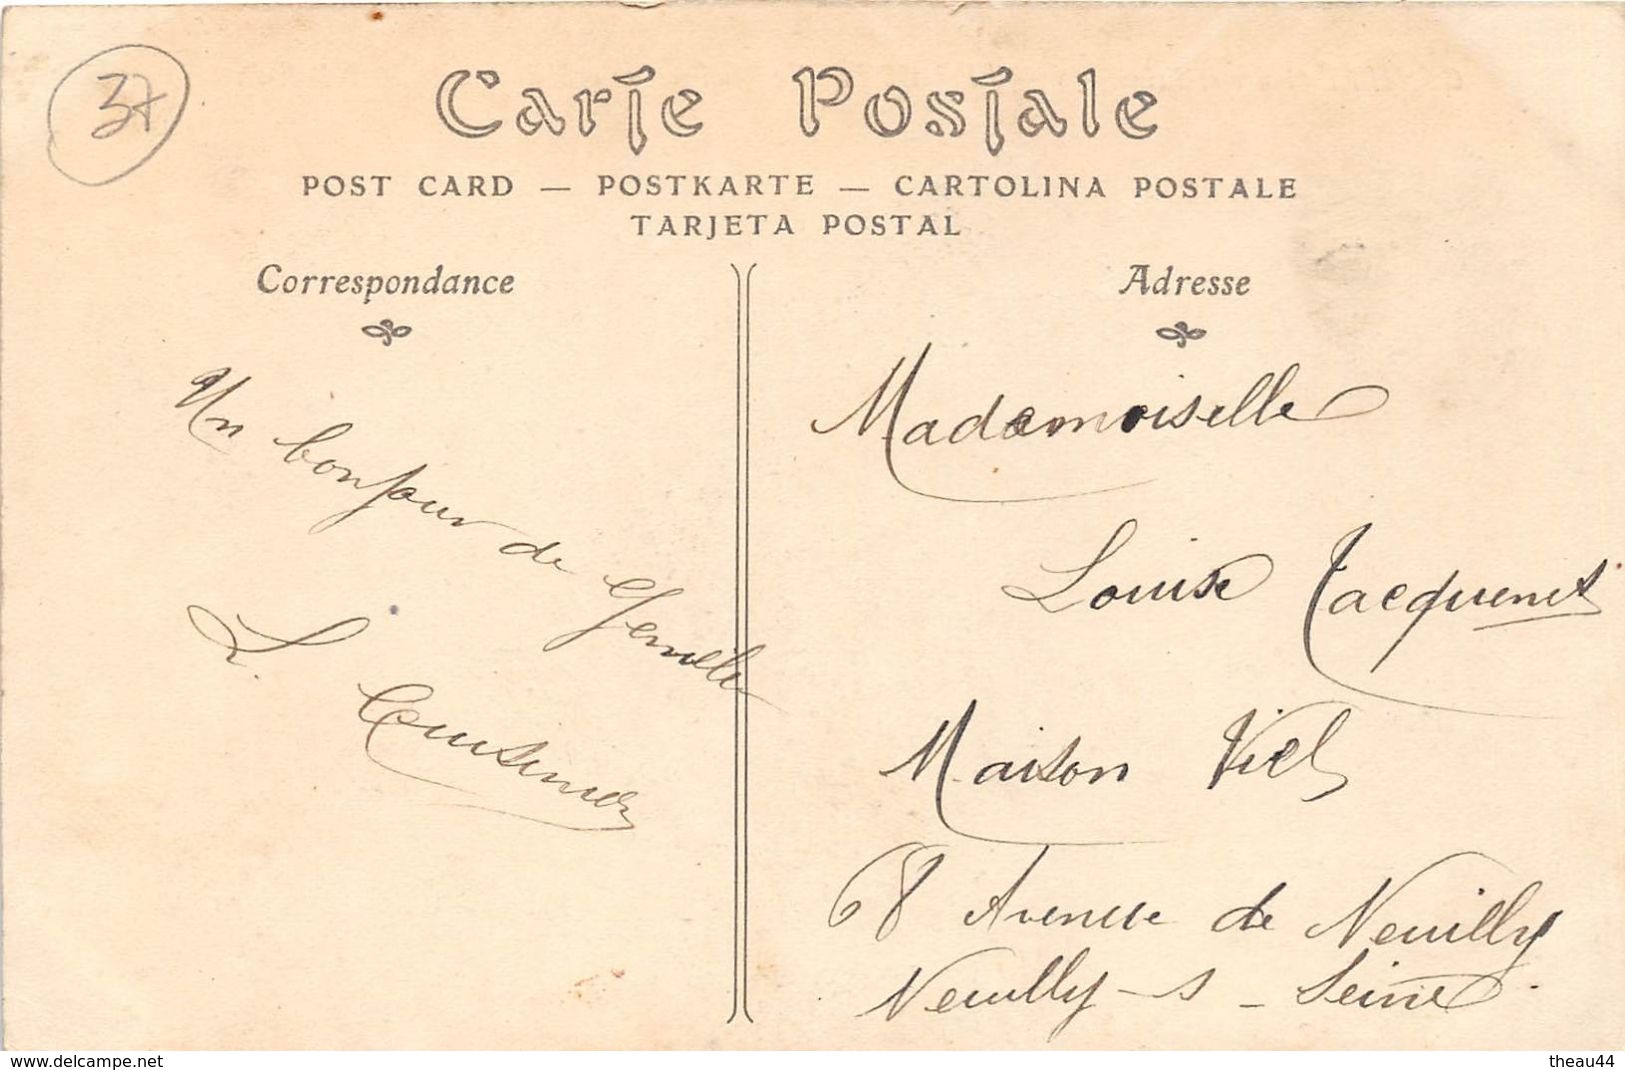 37
Carte Postale
POST CARD — POSTKARTE — CARTOLINA POSTALE
TARJETA POSTAL
Correspondance
Un bonjour de
L.
Adresse
Mademoiselle
Louise Jacquenet
Maison Viel
68 Avenue de Neuilly
Neuilly-s-Seine.
https://www.delcampe.net
theau44